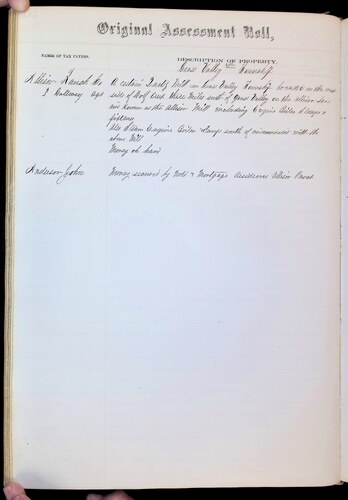 Original Assessment Roll,
NAMES OF TAX PAYERS.
DESCRIPTION OF PROPERTY.
Grass Valley Township
Allison Hannah Mrs A certain Quartz Mill in Grass Valley Township located on the
J Calloway agt side of Wolf Creek three Miles south of Grass Valley on the Allison
and known as the Allison Mill including Engine Boiler Stamps &
fixtures
Also Steam Engine Boiler Pumps with the
above Mill
Money on hand
Anderson John Money secured by Note & Mortgage residence Allison Ranch